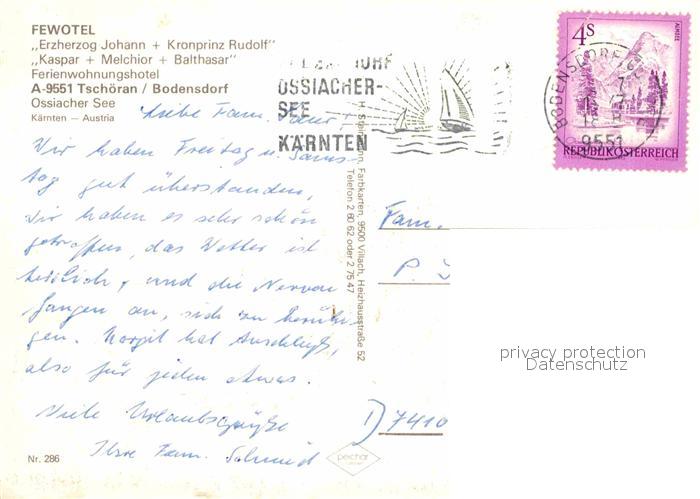 FEWOTEL
„Erzherzog Johann + Kronprinz Rudolf"
„Kaspar + Melchior + Balthasar"
Ferienwohnungshotel
A-9551 Tschöran / Bodensdorf
Ossiacher See
Kärnten — Austria
OSSIACHER-
SEE
KÄRNTEN
4S
ALMSEE
REPUBLIK ÖSTERREICH
BODENSDORF
9551
Liebe Fam.
Wir haben Freitag u. Sams-
tag gut überstanden,
Wir haben es sehr schön
getroffen, das Wetter ist
herrlich, und die Nerven
fangen an, sich zu beruhi-
gen. Margit hat Anschluß,
also für jeden etwas.
Viele Urlaubsgrüße
Ihre Fam. Schmid
Farbkarten, 9500 Villach, Heizhausstraße 52
Telefon 2 60 62 oder 2 75 47
Fam.
P. Ü
D 7410
privacy protection
Datenschutz
Nr. 286